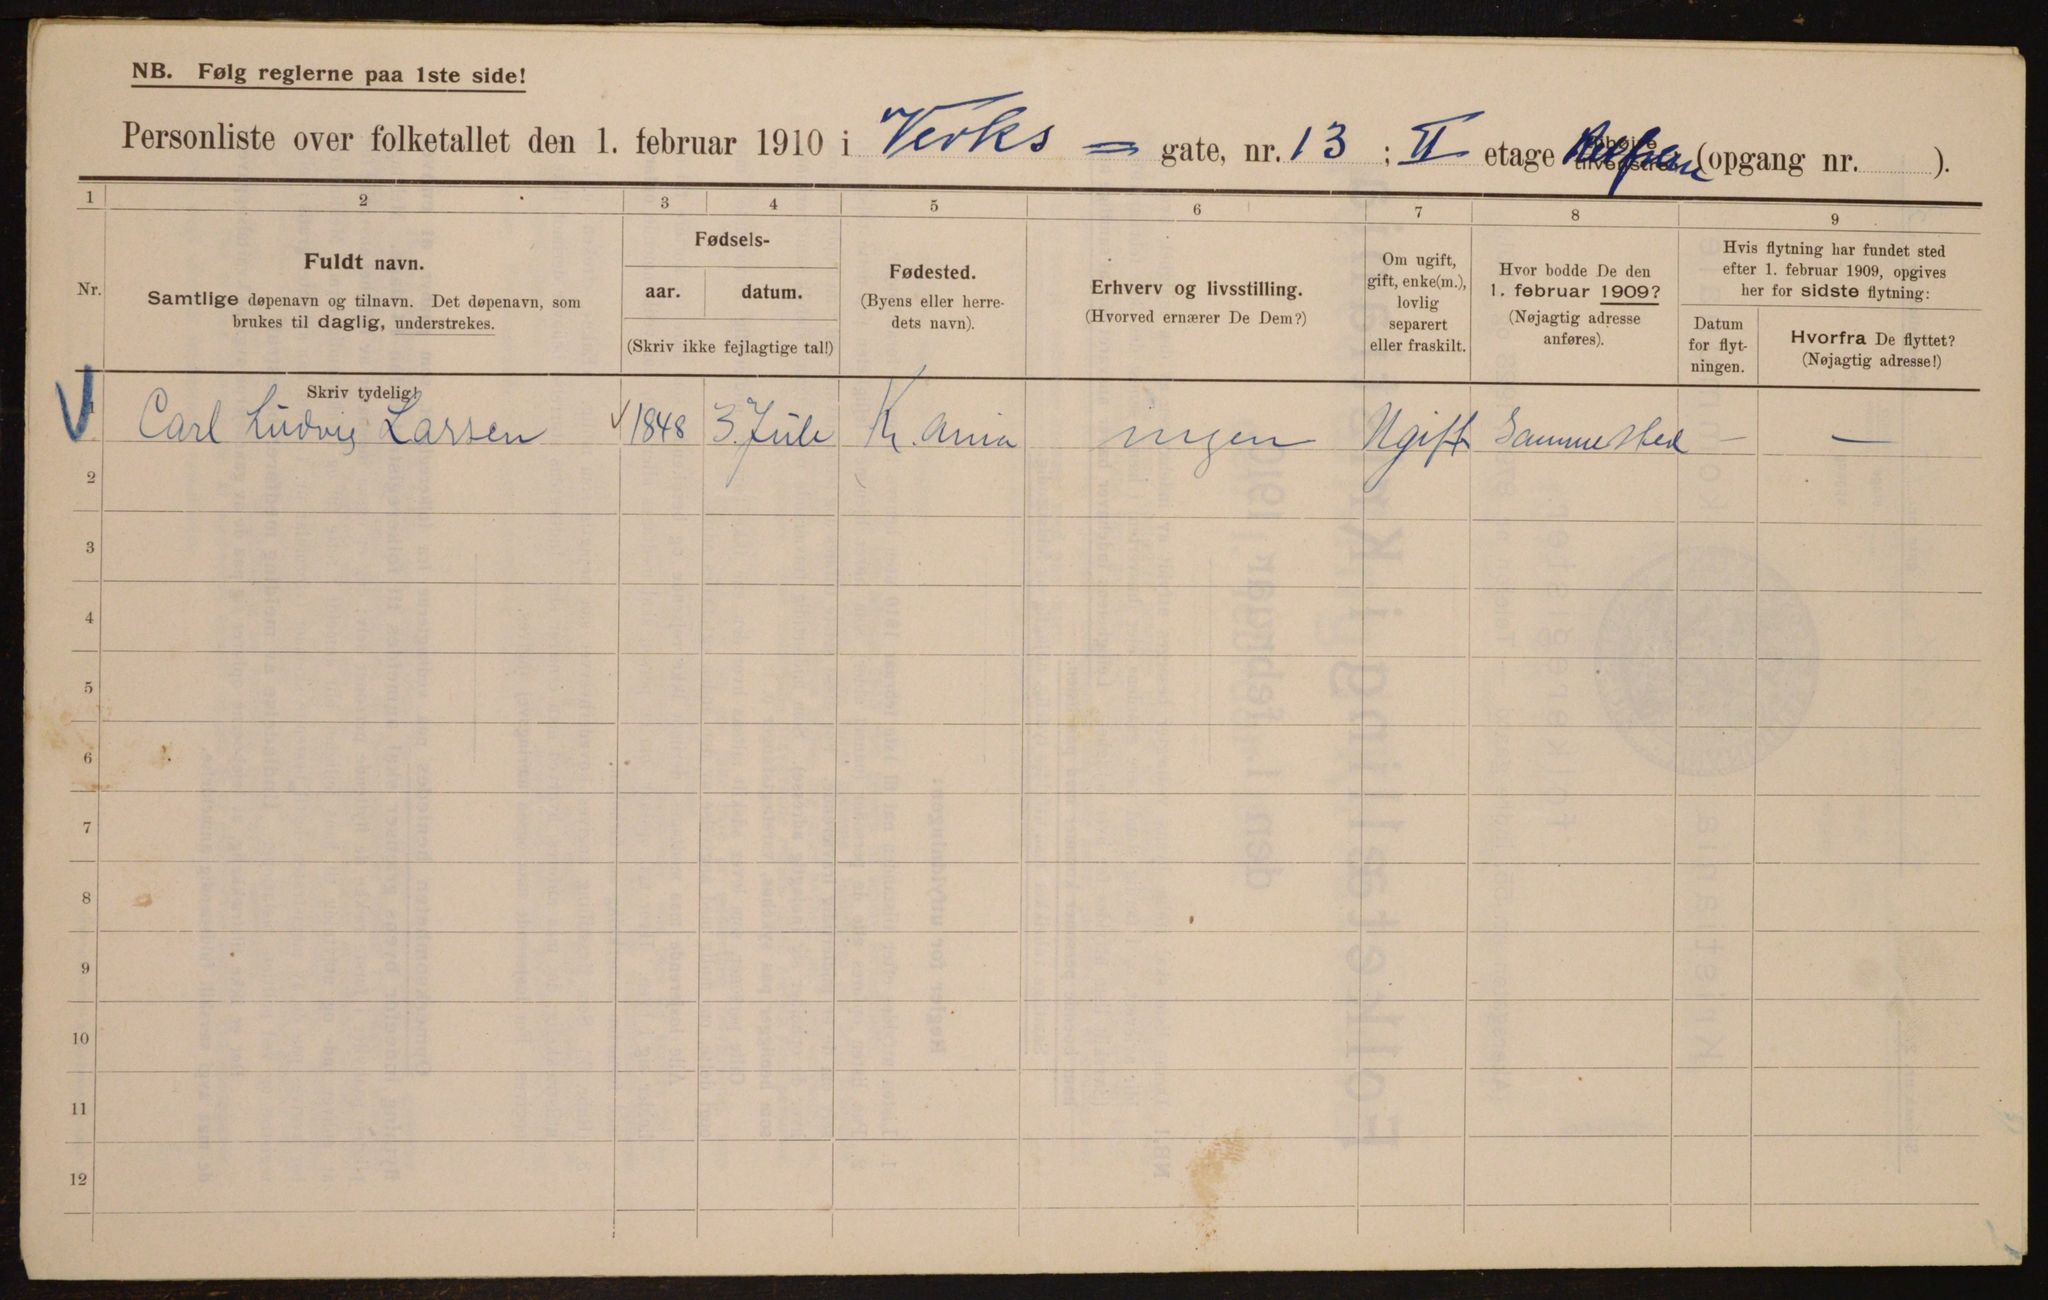 NB. Følg reglerne paa 1ste side!
Personliste over folketallet den 1. februar 1910 i Verks = gate, nr. 13 ; II etage (opgang nr. ).
1 2 3 4 5 6 7 8 9
Nr.
Fuldt navn.
Samtlige døpenavn og tilnavn. Det døpenavn, som
brukes til daglig, understrekes.
Fødsels-
aar. datum.
(Skriv ikke fejlagtige tal!)
Fødested.
(Byens eller herre-
dets navn).
Erhverv og livsstilling.
(Hvorved ernærer De Dem?)
Om ugift,
gift, enke(m.),
lovlig
separert
eller fraskilt.
Hvor bodde De den
1. februar 1909?
(Nøjagtig adresse
anføres).
Hvis flytning har fundet sted
efter 1. februar 1909, opgives
her for sidste flytning:
Datum
for flyt-
ningen.
Hvorfra De flyttet?
(Nøjagtig adresse!)
Skriv tydelig!
1 Carl Ludvig Larsen 1848 3. Juli Kr. ania ingen Ugift Sammested — —
2
3
4
5
6
7
8
9
10
11
12